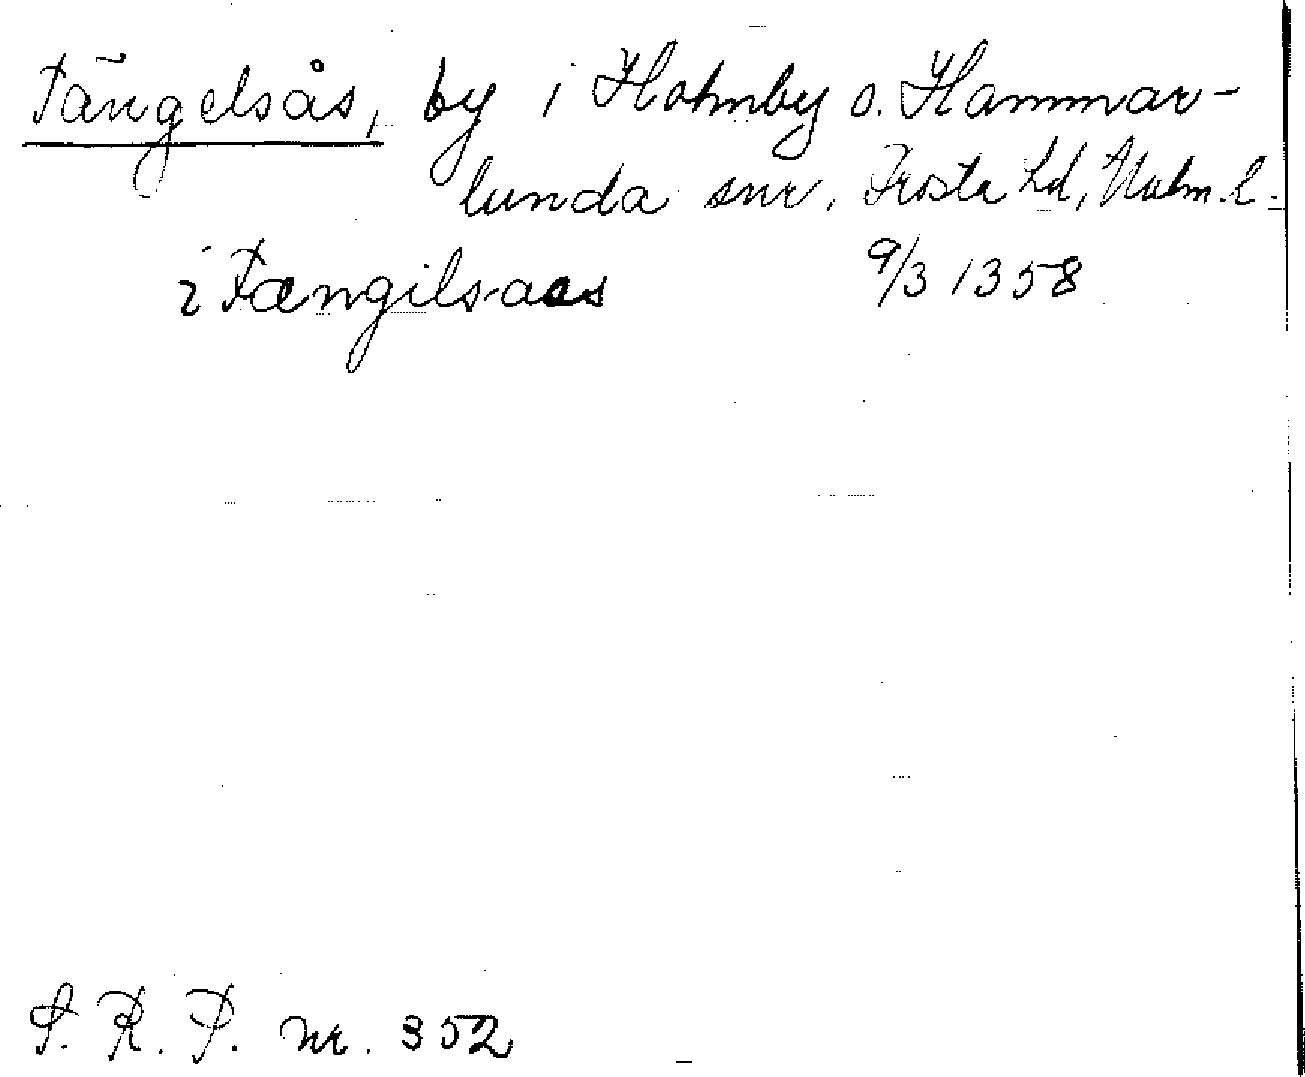 Tängelsås, by i Holmby o. Hammar-
lunda snr, Frosta hd, Malm. l.
i Tængilsaas 9/3 1358
S. R. P. nr. 352